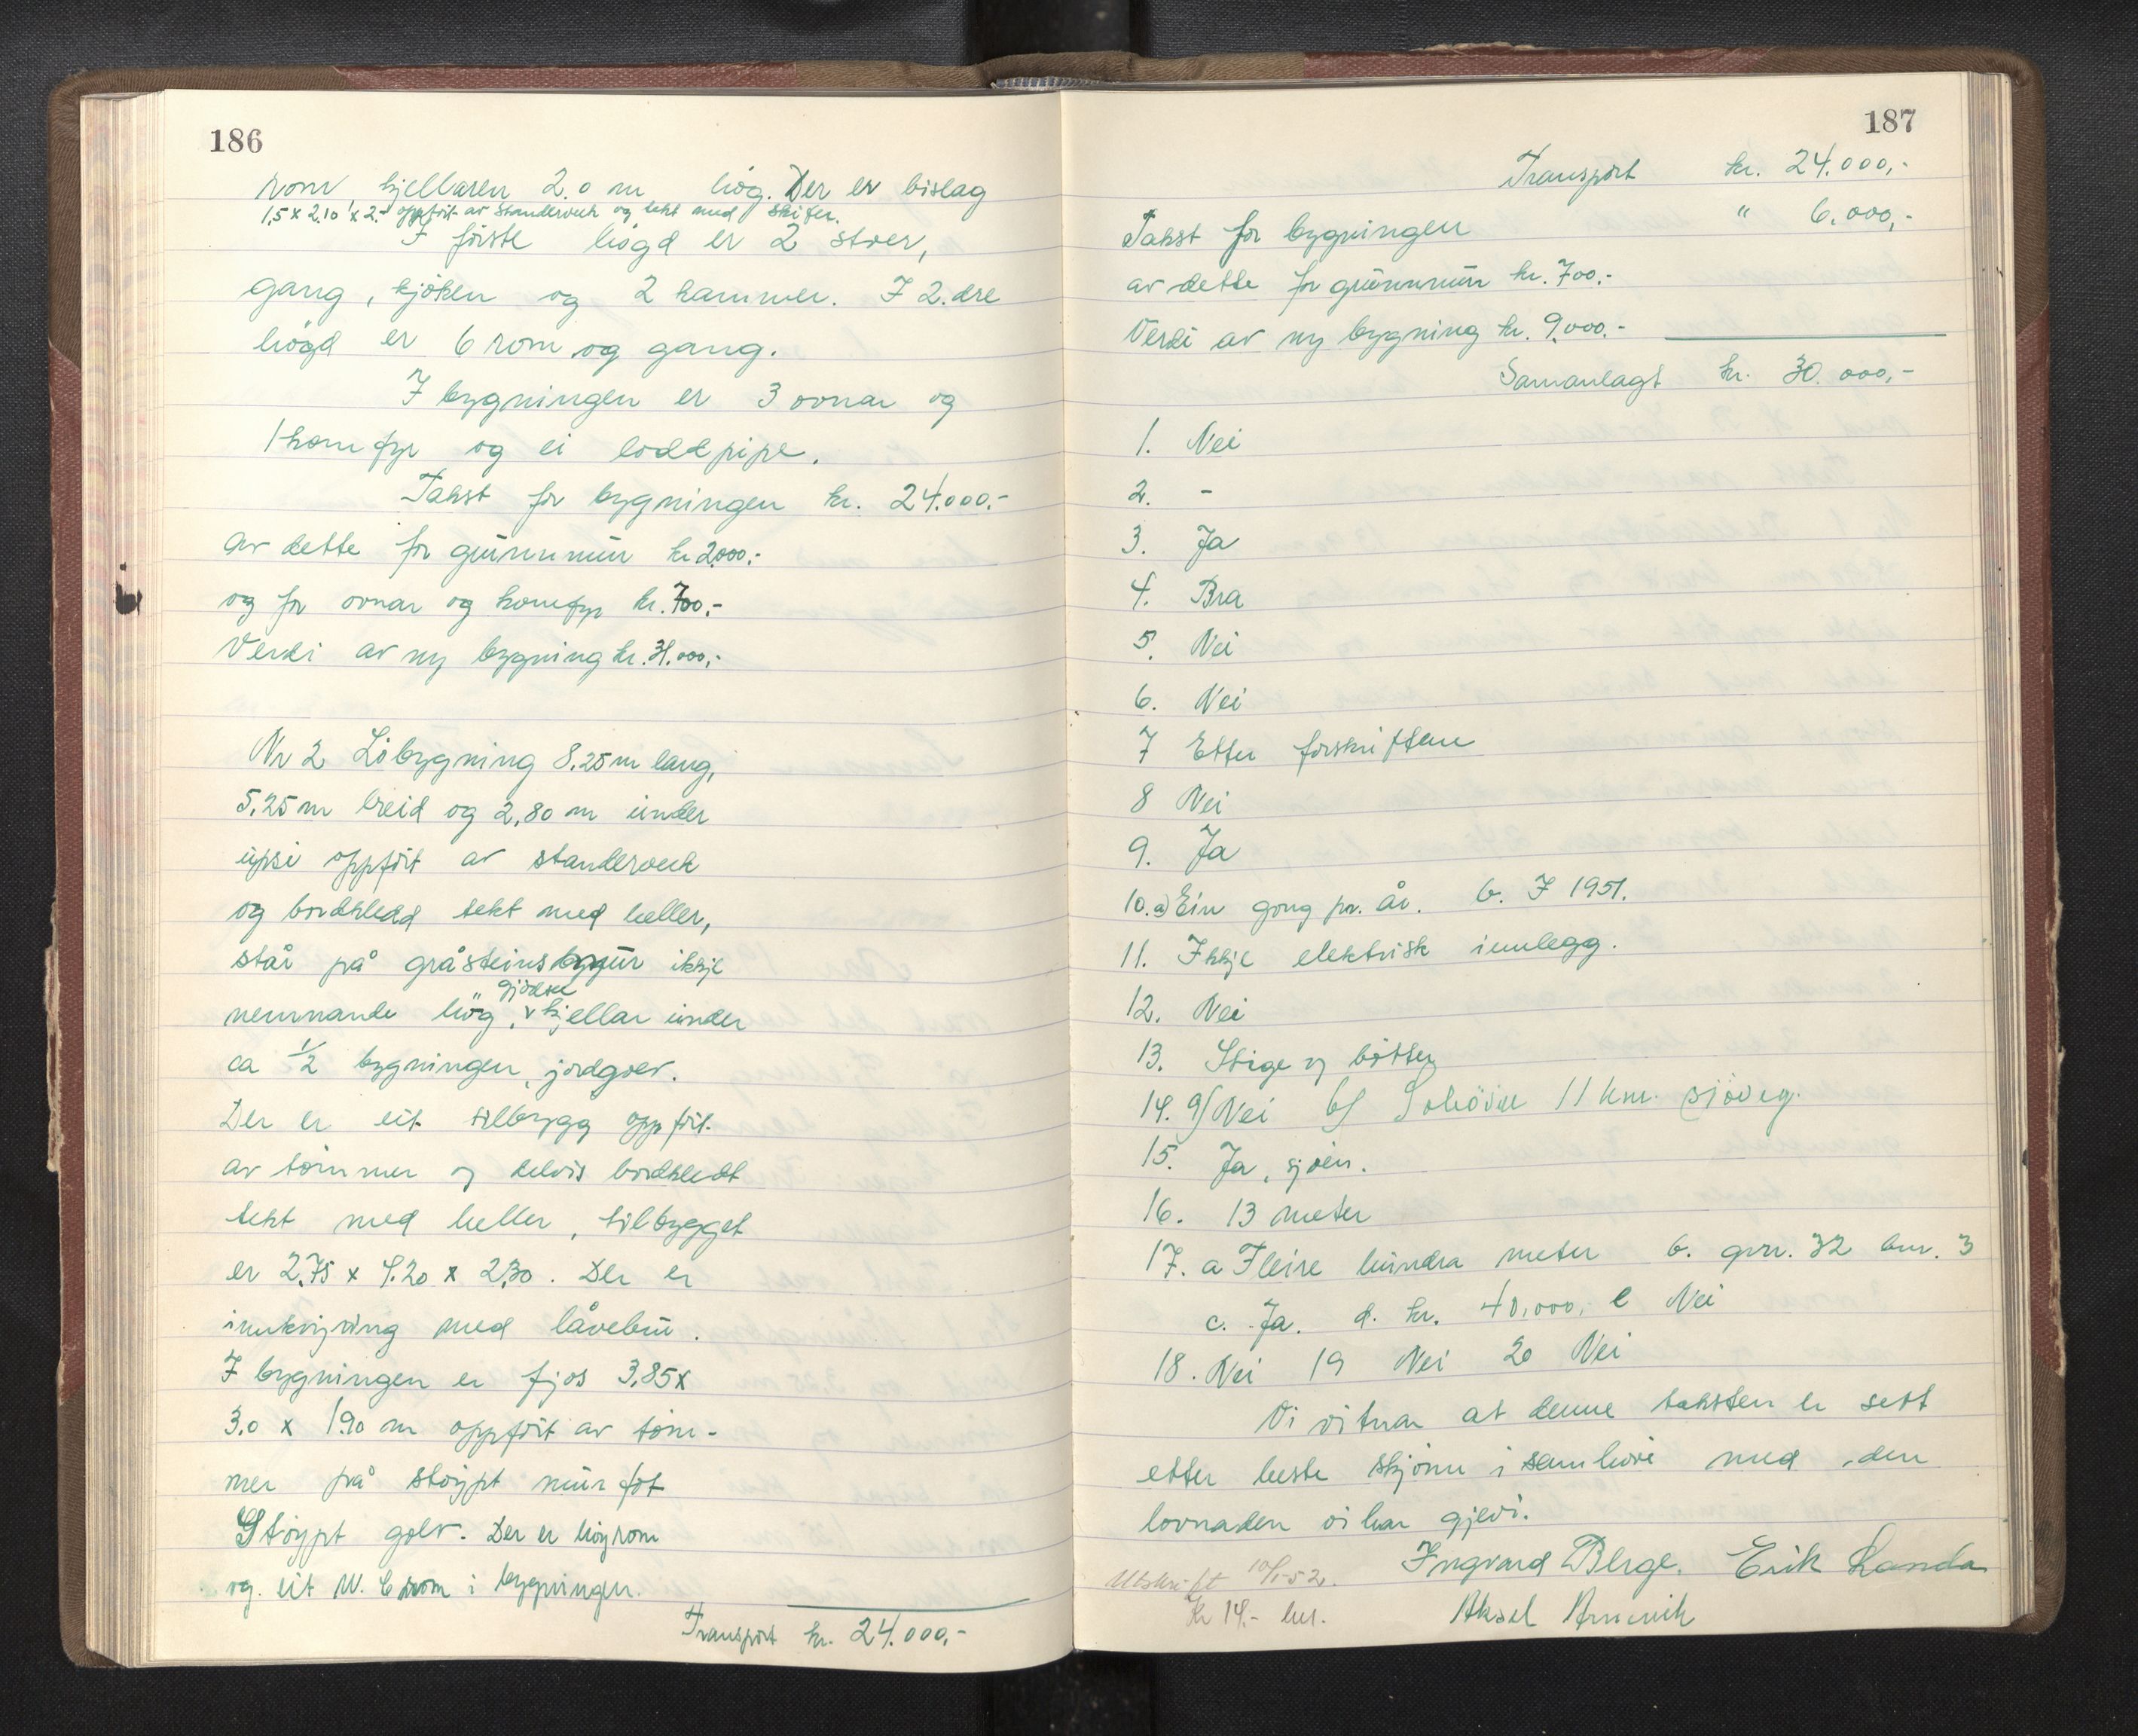 186
rom kjellaren 2.0 m høg. Der er bislag
1,5 x 2.10 x 2.- oppført av standerverk og tekt med skifer.
I første høgd er 2 stver,
gang, kjøken og 2 kammer. I 2.dre
høgd er 6 rom og gang.
I bygningen er 3 ovnar og
1 komfyr og ei loddpipe.
Takst for bygningen kr. 24.000.-
av dette for grunnmur kr 2000.-
og for ovnar og komfyr kr. 700.-
Verdi av ny bygning kr. 31.000,-
Nr 2 Löbygning 8.25 m lang,
5.25 m breid og 2,80 m under
upsi oppført av standerverk
og bordkledd tekt med heller,
står på gråsteinsmur ikkje
gjödsel
nemnande høg, v kjellar under
ca 1/2 bygningen, jordgolv.
Der er eit tilbygg oppført
av tømmer og delvis bordkledt
tekt med heller, tilbygget
er 2,75 x 4.20 x 2,30. Der er
innkøyring med låvebru.
I bygningen er fjos 3,85 x
3.0 x 1.90 m oppført av tøm-
mer på støypt murfot
Støypt golv. Der er høyrom
og eit W.C rom i bygningen.
Transport kr. 24.000,-
187
Transport kr. 24.000,-
Takst for bygningen " 6.000,-
av dette for grunnmur kr. 700.-
Verdi av ny bygning kr. 9.000.-
Samanlagt kr. 30.000,-
1. Nei
2. -
3. Ja
4. Bra
5. Nei
6. Nei
7 Etter forskriftene
8 Nei
9. Ja
10. a) Ein gong pr. år. b. I 1951.
11. Ikkje elektrisk innlegg.
12. Nei
13. Stige og bøtter
14. a/ Nei b/ 11 km. sjöveg.
15. Ja, sjøen.
16. 13 meter
17. a Fleire hundra meter b. gnr. 32 bnr. 3
c. Ja. d. kr. 40,000, e Nei
18. Nei 19 Nei 20 Nei
Vi vitnar at denne taksten er sett
etter beste skjønn i samhøve med den
lovnaden vi har gjevi.
Ingvard Berge. Erik Landa
Utskrift 10/1-52.
Kr 14.-
Aksel